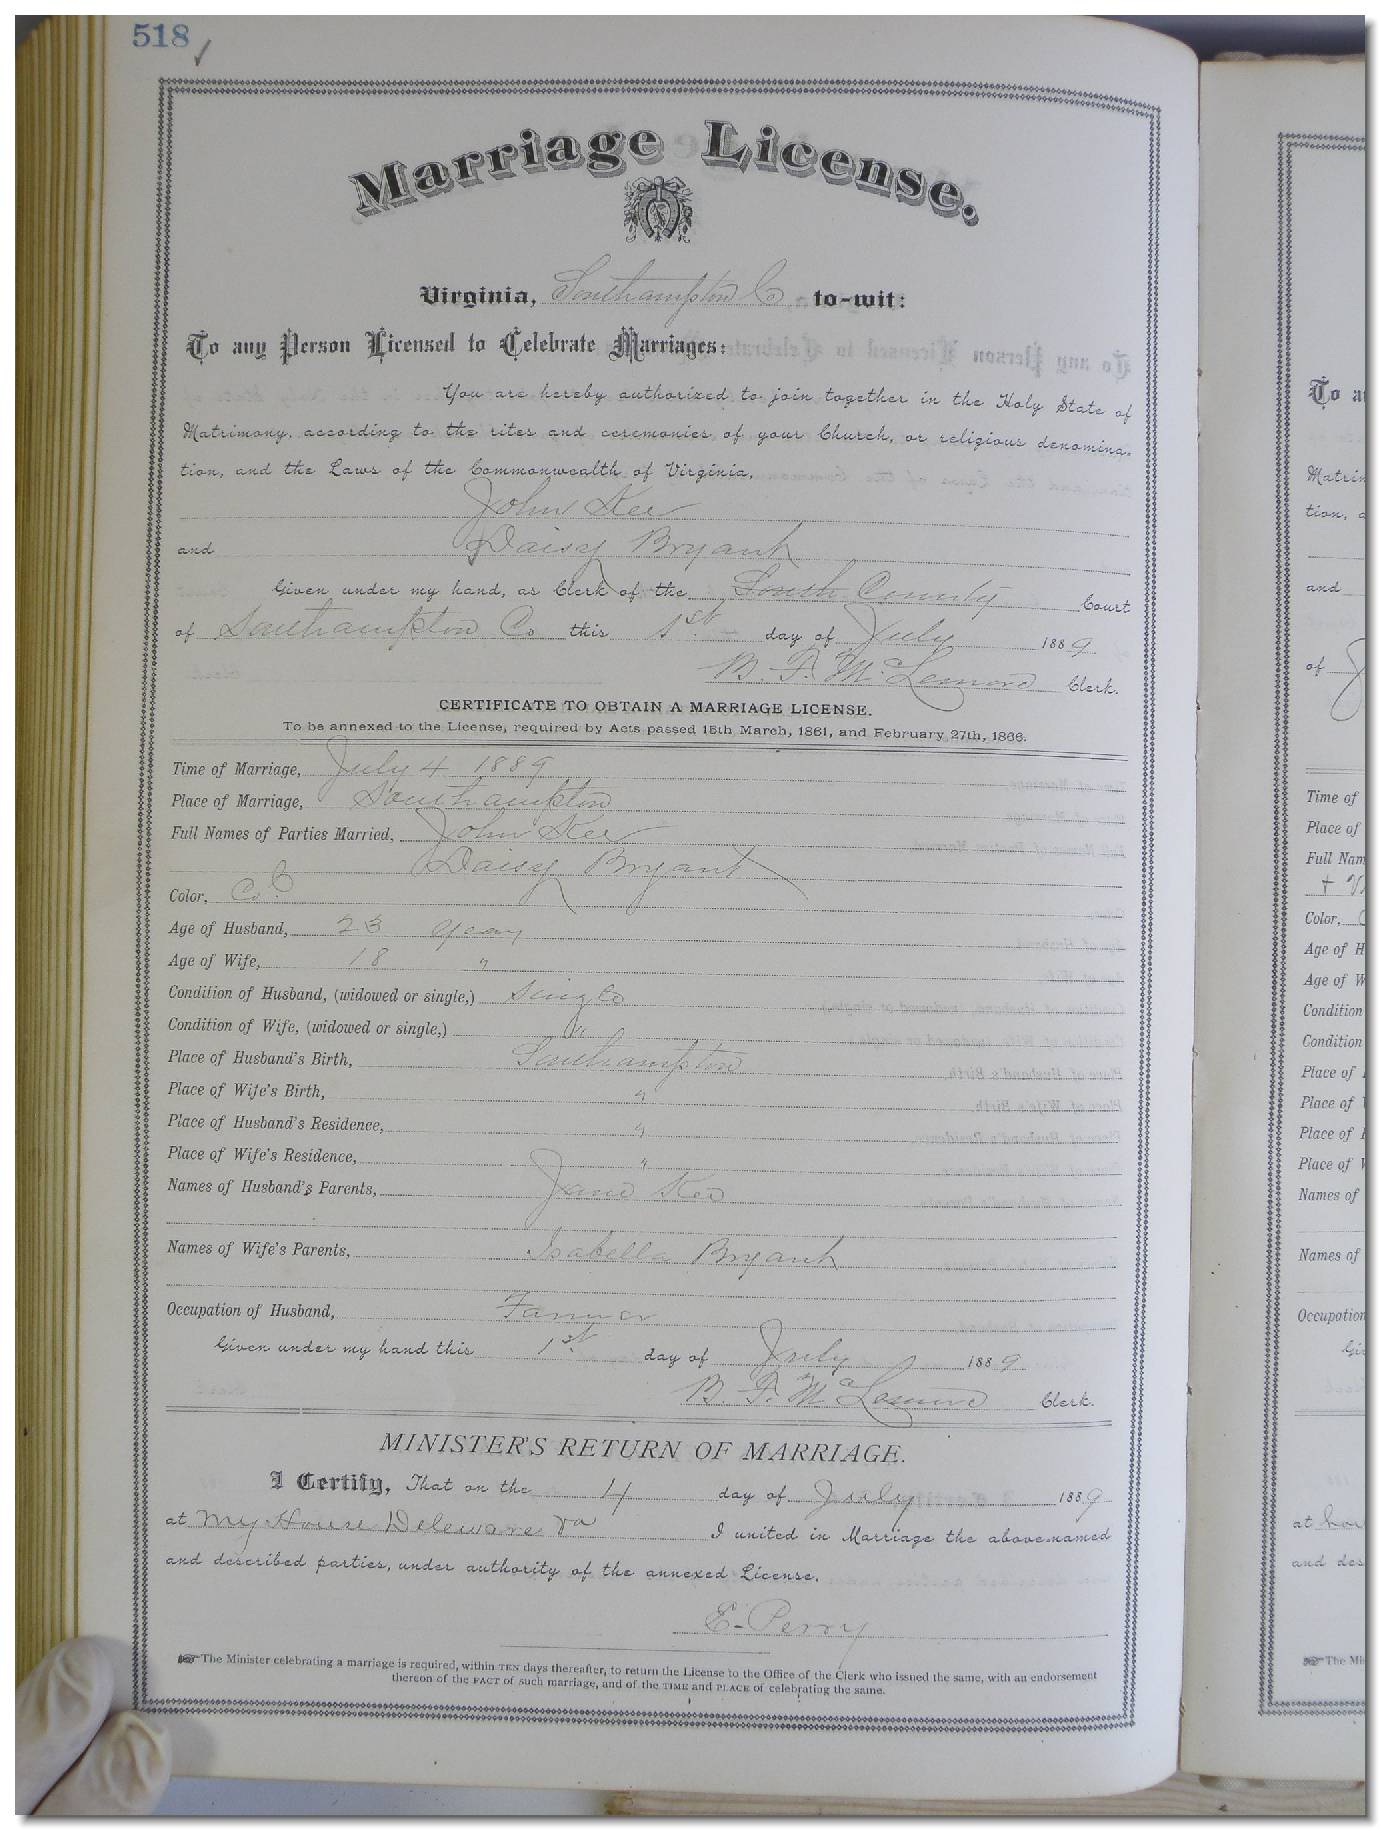 518
Marriage License.
Virginia, Southampton Co to-wit:
To any Person Licensed to Celebrate Marriages:
You are hereby authorized to join together in the Holy State of
Matrimony, according to the rites and ceremonies of your Church, or religious denomina-
tion, and the Laws of the Commonwealth of Virginia,
John Kee
and Daisy Bryant
Given under my hand, as Clerk of the County Court
of Southampton Co this 1st day of July 1889
B. F. McLemore Clerk.
CERTIFICATE TO OBTAIN A MARRIAGE LICENSE.
To be annexed to the License, required by Acts passed 15th March, 1861, and February 27th, 1866.
Time of Marriage, July 4 1889
Place of Marriage, Southampton
Full Names of Parties Married, John Kee
Daisy Bryant
Color, Cold
Age of Husband, 23 years
Age of Wife, 18 "
Condition of Husband, (widowed or single,) Single
Condition of Wife, (widowed or single,) "
Place of Husband's Birth, Southampton
Place of Wife's Birth, "
Place of Husband's Residence, "
Place of Wife's Residence, "
Names of Husband's Parents, Jane Kee
Names of Wife's Parents, Isabella Bryant
Occupation of Husband, Farmer
Given under my hand this 1st day of July 1889
B. F. McLemore Clerk.
MINISTER'S RETURN OF MARRIAGE.
I Certify, That on the 4 day of July 1889
at My House Deleware Va I united in Marriage the above-named
and described parties, under authority of the annexed License.
E. Perry
The Minister celebrating a marriage is required, within TEN days thereafter, to return the License to the Office of the Clerk who issued the same, with an endorsement
thereon of the FACT of such marriage, and of the TIME and PLACE of celebrating the same.
To a
Matrim
tion, a
and
of
Time of
Place of
Full Nam
Color,
Age of H
Age of W
Condition
Condition
Place of
Place of
Place of
Place of
Names of
Names of
Occupation
at
and des
The Min